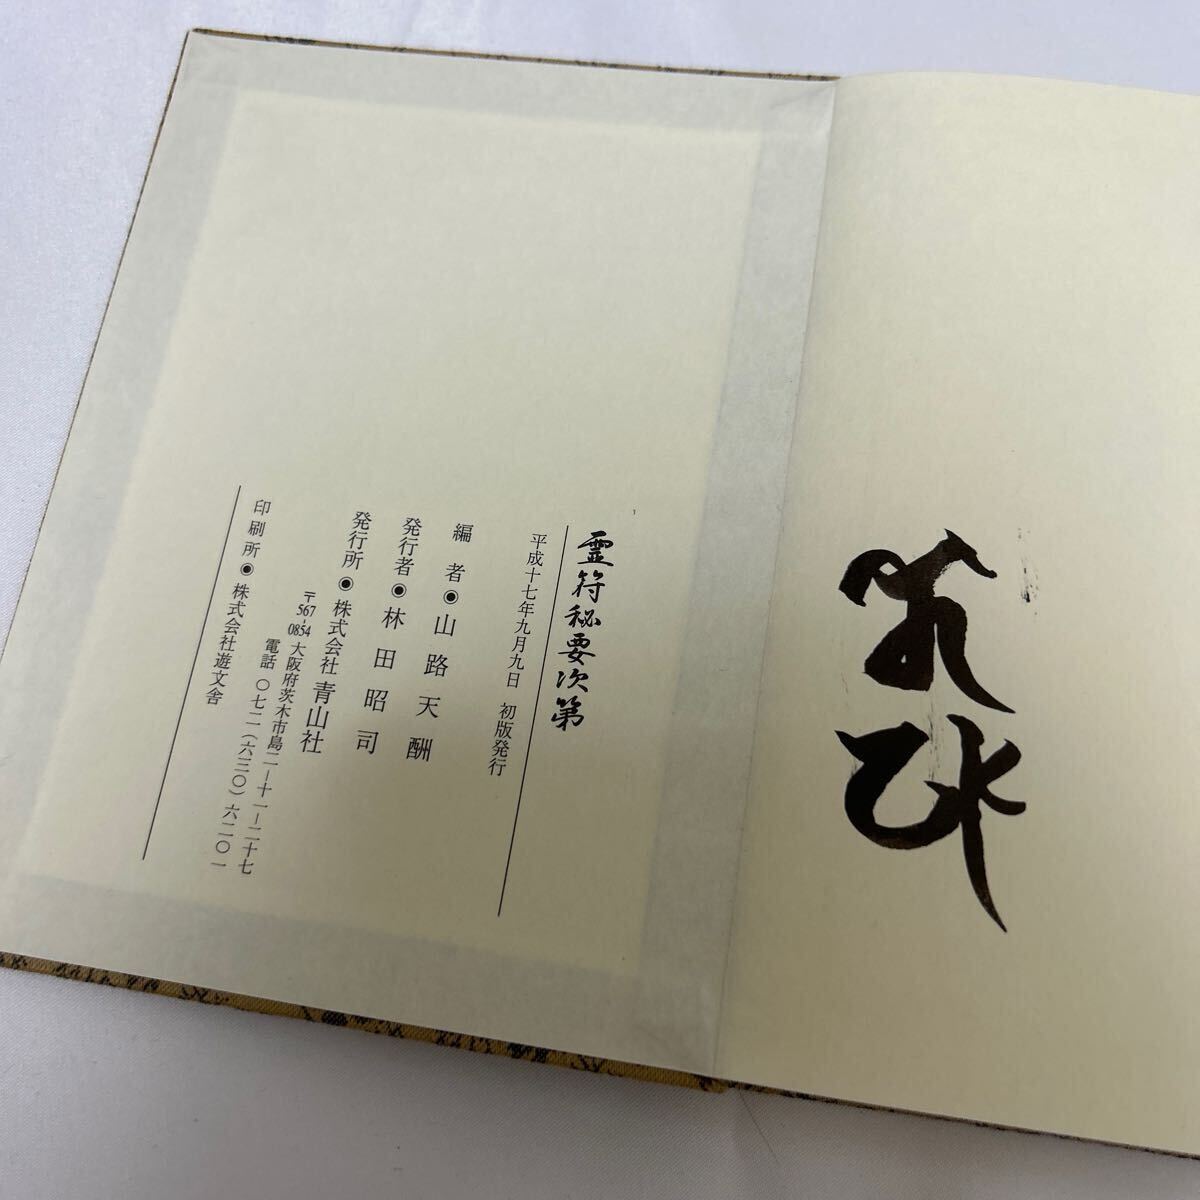 霊符秘要次第
平成十七年九月九日 初版発行
編者◉山路天酬
発行者◉林田昭司
発行所◉株式会社 青山社
〒567-0854 大阪府茨木市島二ー十一ー二十七
電話 〇七二(六三〇)六二〇一
印刷所◉株式会社遊文舎